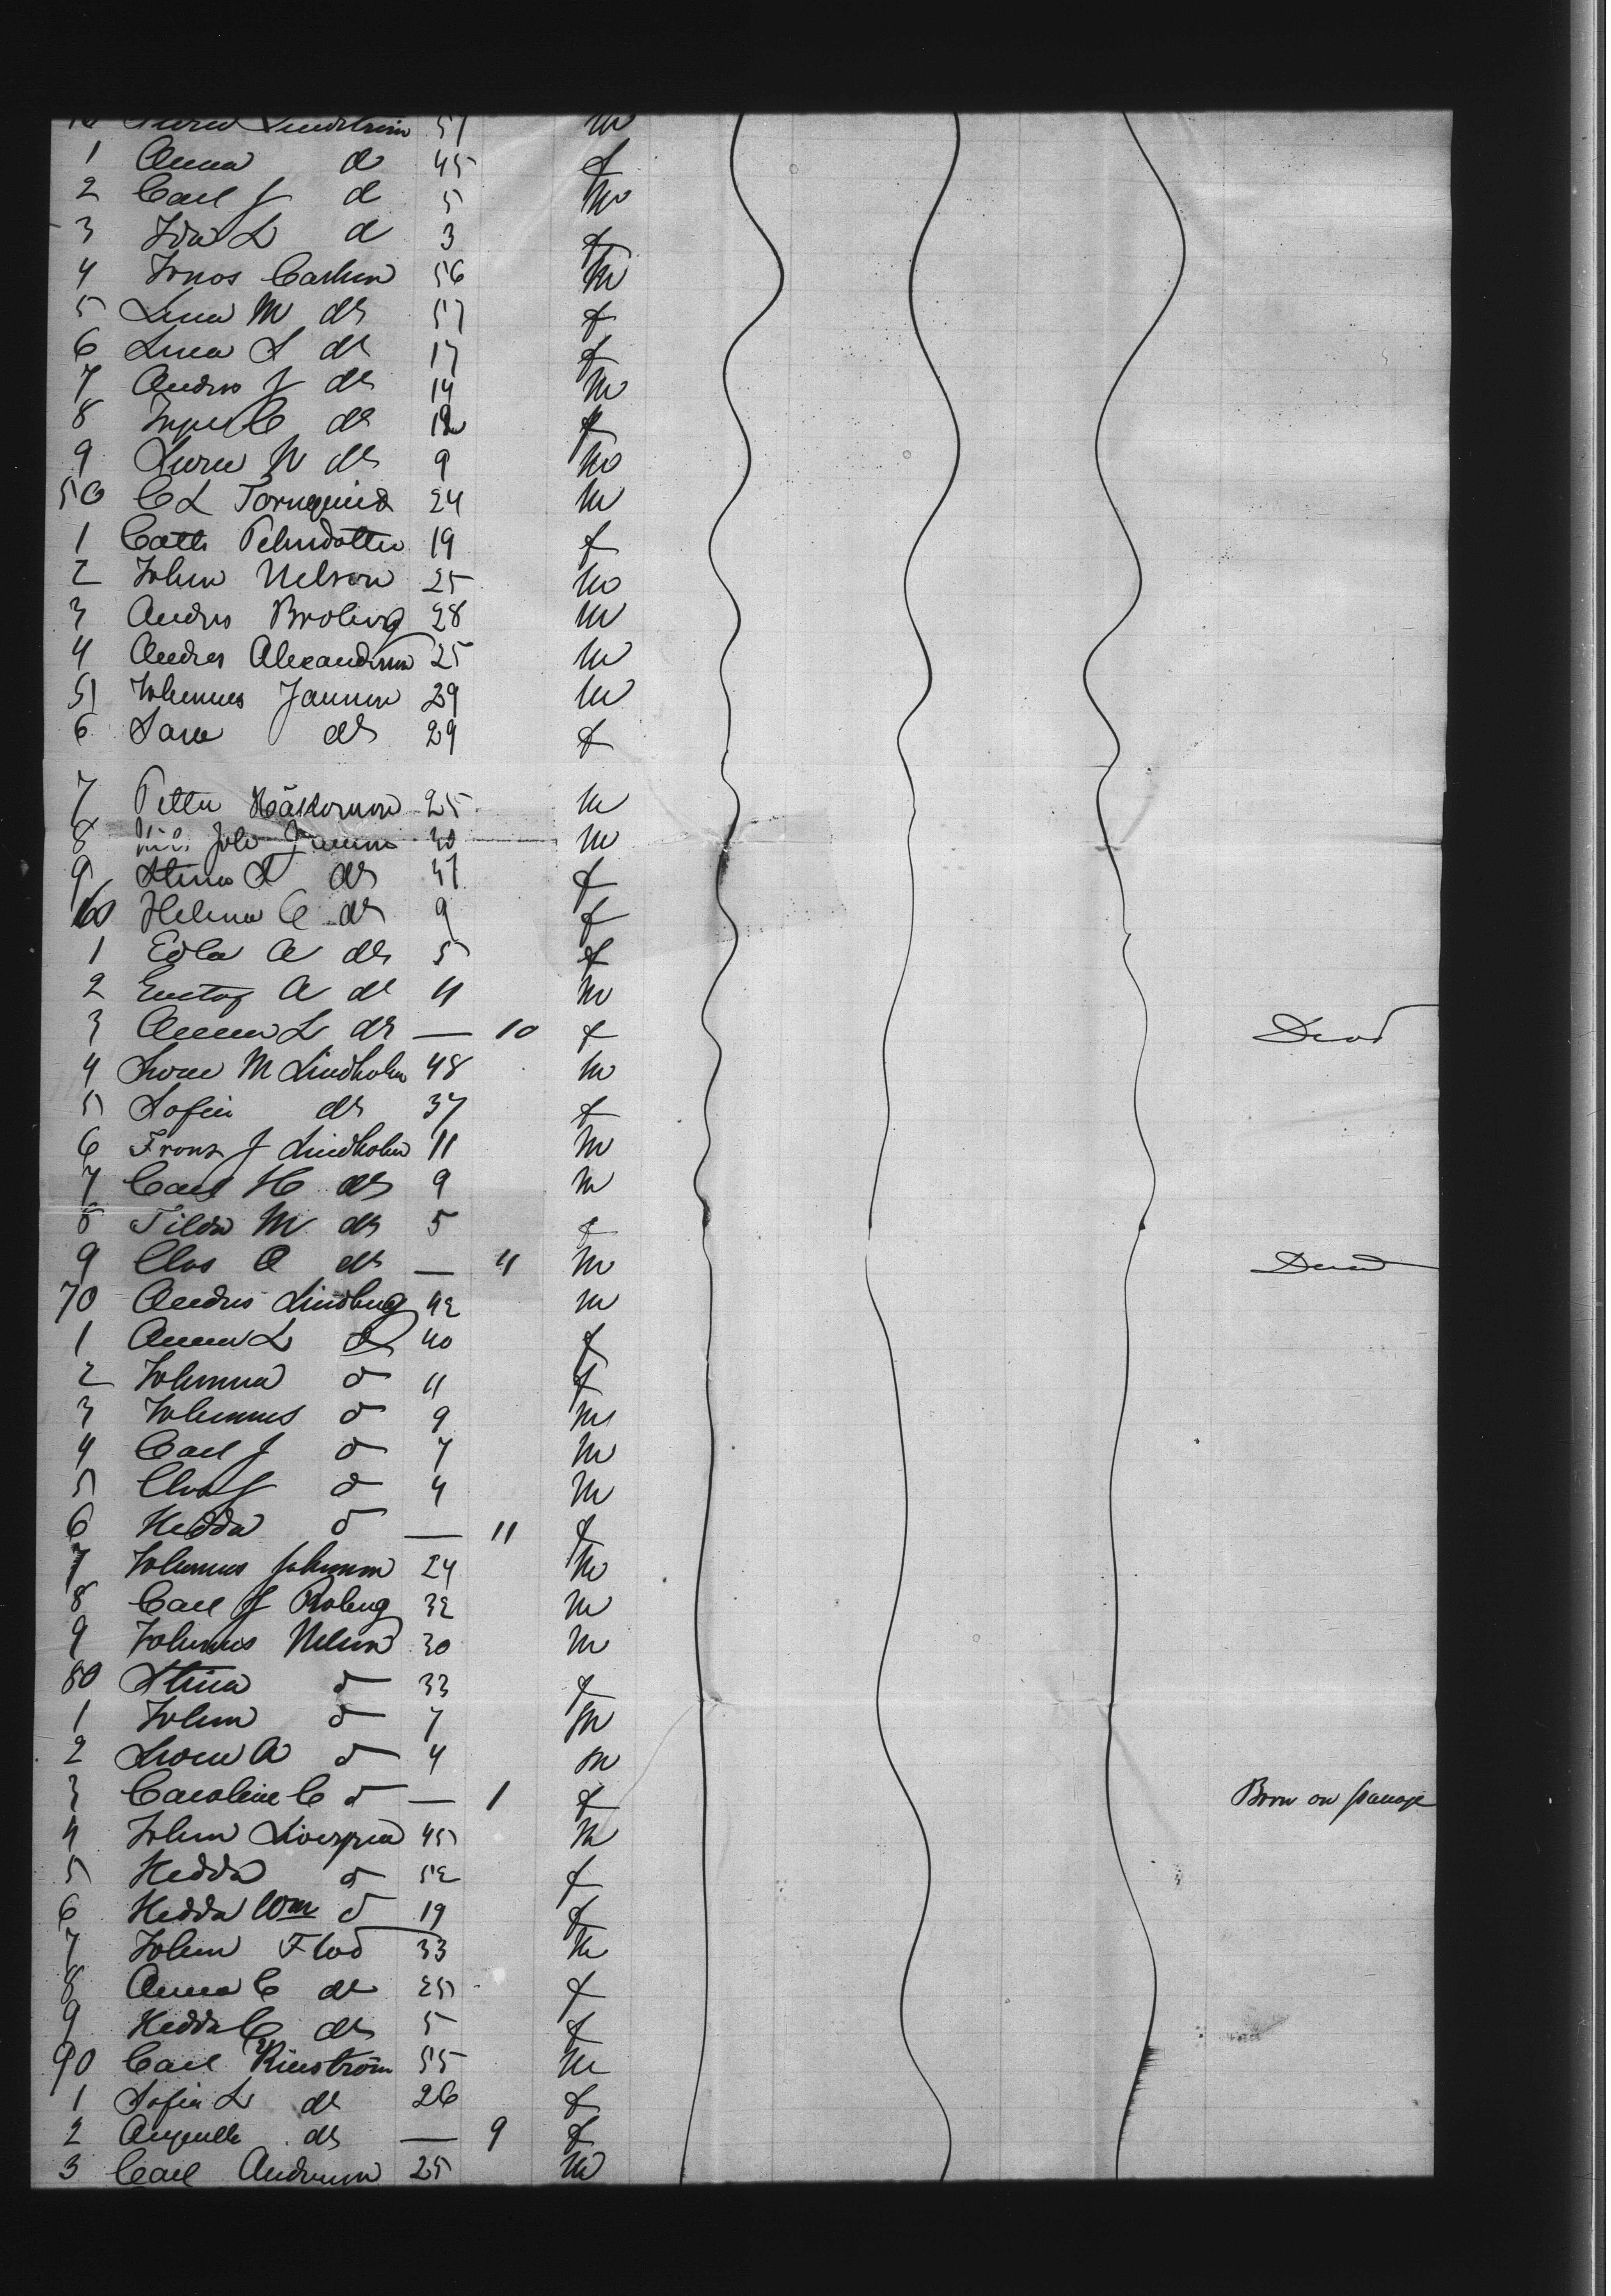 Lindström 51 m
1 Anna d 45 f
2 Carl J d 5 m
3 Ida L d 3 f
4 Jonos Carlson 56 m
5 Lena M do 57 f
6 Lena S do 17 f
7 Andrs J do 14 m
8 Inger C do 12 f
9 Sven N do 9 m
50 C L Tornquist 24 m
1 Cath Pehrsdotter 19 f
2 John Nelson 25 m
3 Andrs Broling 28 m
4 Andrs Alexanderson 25 m
5 Johannes Janson 29 m
6 Sara do 29 f
7 Petter Håkonson 25 m
8 Joh Jonson 30 m
9 Stina L do 31 f
60 Helena C do 9 f
1 Edla A do 5 f
2 Gustaf A do 4 m
3 Anna L do — 10 f Dead
4 Sven M Lindholm 48 m
5 Sofia do 37 f
6 Frans J Lindholm 11 m
7 Carl H do 9 m
8 Tilda M do 5 f
9 Clas A do — 4 m Dead
70 Andrs Lindberg 42 m
1 Anna L do 40 f
2 Johanna d 11 f
3 Johannes d 9 m
4 Carl J d 7 m
5 Clas J d 4 m
6 Hedda d — 11 f
7 Johannes Johnson 24 m
8 Carl J Roberg 32 m
9 Johannes Nelson 30 m
80 Stina d 33 f
1 John d 7 m
2 Sven A d 4 m
3 Caroline C d — 1 f Born on passage
4 John 45 m
5 Hedda d 52 f
6 Hedda Wm d 19 f
7 John Flod 33 m
8 Anna C do 25 f
9 Hedda C do 5 f
90 Carl Rinström 35 m
1 Sofia L do 26 f
2 do — 9 f
3 Carl Anderson 25 m